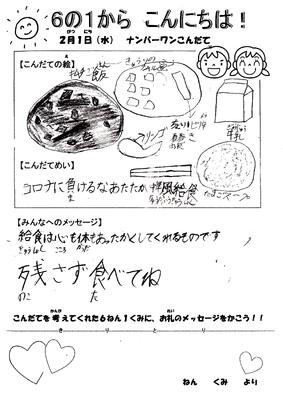 6の1から こんにちは！
2月1日（水） ナンバーワンこんだて
がつ にち
【こんだての絵】
飯
リンゴ
牛乳
たまごスープ
【こんだてめい】
コロナに負けるなあたたか中華風給食
【みんなへのメッセージ】
給食は心も体もあったかくしてくれるものです
きゅうしょく こころ からだ
残さず食べてね
のこ た
こんだてを考えてくれた6ねん1くみに、お礼のメッセージをかこう！！
かんが れい
きりとり
ねん くみ より